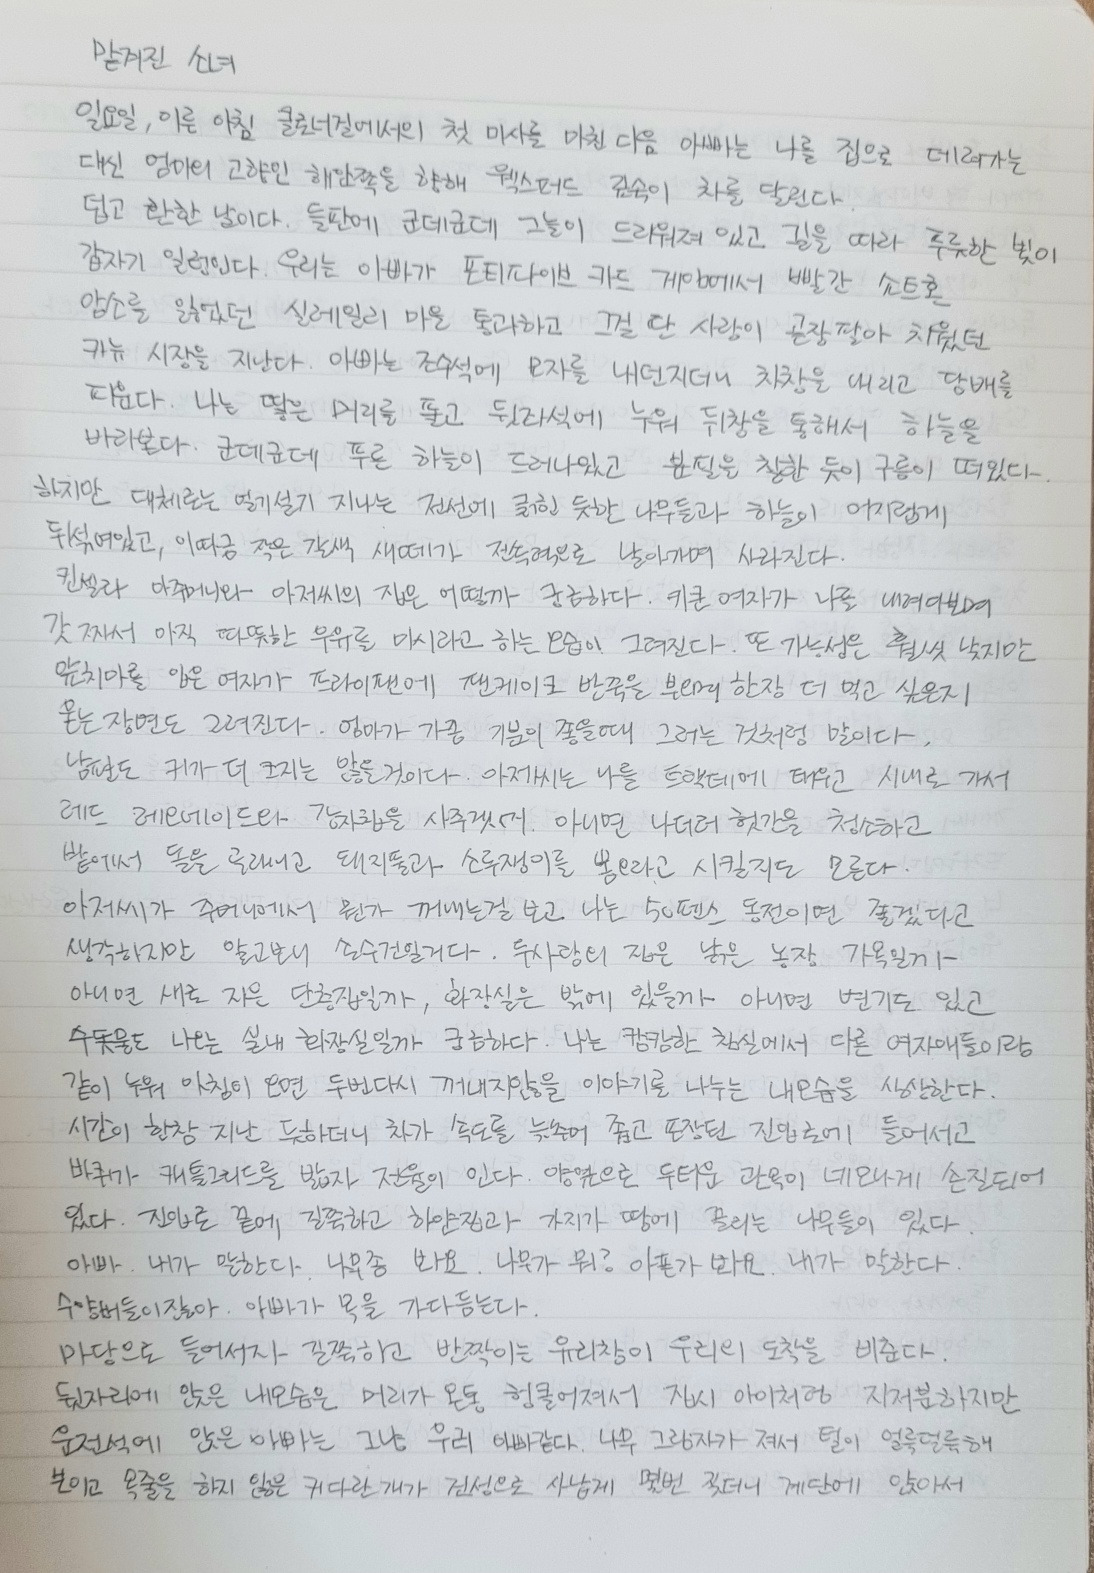 맡겨진 소녀
일요일, 이른 아침 클로너걸에서의 첫 미사를 마친 다음 아빠는 나를 집으로 데려가는
대신 엄마의 고향인 해안쪽을 향해 웩스퍼드 깊숙이 차를 달린다.
덥고 환한 날이다. 들판에 군데군데 그늘이 드리워져 있고 길을 따라 푸릇한 빛이
갑자기 일렁인다. 우리는 아빠가 포티파이브 카드 게임에서 빨간 쇼트혼
암소를 잃었던 실레일리 마을 통과하고 그걸 딴 사람이 곧장 팔아 치웠던
카뉴 시장을 지난다. 아빠는 조수석에 모자를 내던지더니 차창을 내리고 담배를
피운다. 나는 땋은 머리를 풀고 뒷좌석에 누워 뒤창을 통해서 하늘을
바라본다. 군데군데 푸른 하늘이 드러나있고 분필을 칠한 듯이 구름이 떠있다.
하지만 대체로는 얼기설기 지나는 전선에 긁힌 듯한 나무들과 하늘이 어지럽게
뒤섞여있고, 이따금 작은 갈색 새떼가 전속력으로 날아가며 사라진다.
킨셀라 아주머니와 아저씨의 집은 어떨까 궁금하다. 키큰 여자가 나를 내려다보며
갓 짜서 아직 따뜻한 우유를 마시라고 하는 모습이 그려진다. 또 가능성은 훨씬 낮지만
앞치마를 입은 여자가 프라이팬에 팬케이크 반죽을 부으며 한장 더 먹고 싶은지
묻는 장면도 그려진다. 엄마가 가끔 기분이 좋을때 그러는 것처럼 말이다.
남편도 키가 더 크지는 않을것이다. 아저씨는 나를 트랙터에 태우고 시내로 가서
레드 레모네이드와 감자칩을 사주겠거. 아니면 나더러 헛간을 청소하고
밭에서 돌을 골라내고 돼지풀과 소루쟁이를 뽑으라고 시킬지도 모른다.
아저씨가 주머니에서 뭔가 꺼내는걸 보고 나는 50펜스 동전이면 좋겠다고
생각하지만 알고보니 손수건일거다. 두사람의 집은 낡은 농장 가옥일까
아니면 새로 지은 단층집일까, 화장실은 밖에 있을까 아니면 변기도 있고
수돗물도 나오는 실내 화장실일까 궁금하다. 나는 캄캄한 침실에서 다른 여자애들이랑
같이 누워 아침이 오면 두번다시 꺼내지않을 이야기를 나누는 내모습을 상상한다.
시간이 한참 지난 듯하더니 차가 속도를 늦추며 좁고 포장된 진입로에 들어서고
바퀴가 캐틀그리드를 밟자 전율이 인다. 양옆으로 두터운 관목이 네모나게 손질되어
있다. 진입로 끝에 길쭉하고 하얀집과 가지가 땅에 끌리는 나무들이 있다.
아빠. 내가 말한다. 나무좀 봐요. 나무가 뭐? 아픈가 봐요. 내가 말한다.
수양버들이잖아. 아빠가 목을 가다듬는다.
마당으로 들어서자 길쭉하고 반짝이는 유리창이 우리의 도착을 비춘다.
뒷자리에 앉은 내모습은 머리가 온통 헝클어져서 집시 아이처럼 지저분하지만
운전석에 앉은 아빠는 그냥 우리 아빠같다. 나무 그림자가 져서 털이 얼룩덜룩해
보이고 목줄을 하지 않은 커다란 개가 건성으로 사납게 몇번 짖더니 계단에 앉아서